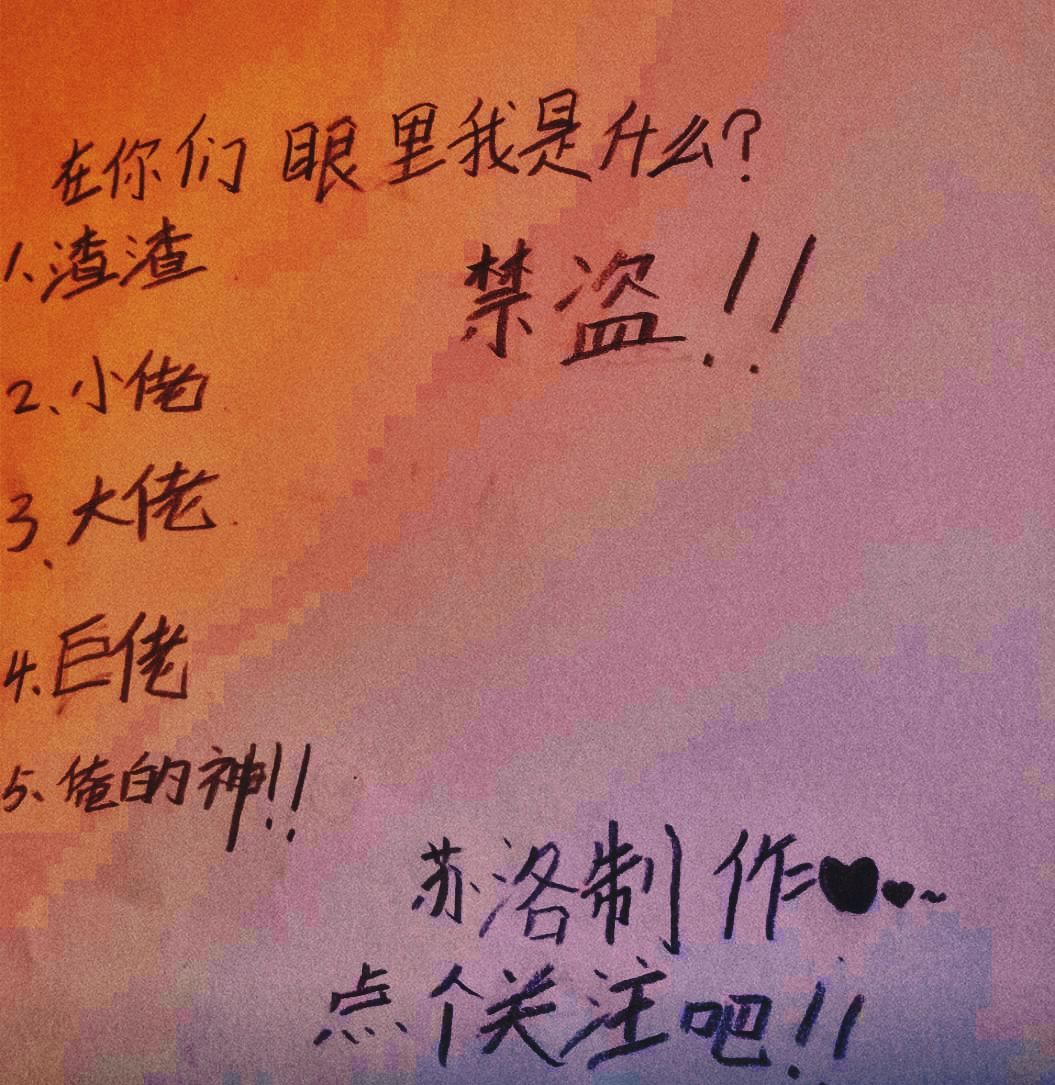 在你们眼里我是什么?
1、渣渣
禁盗!!
2、小佬
3、大佬
4、巨佬
5、俺的神!!
苏洛制作♥♥~
点个关注吧!!